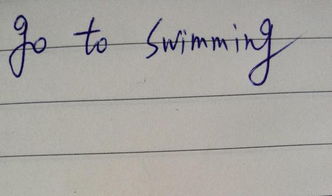 go to swimming